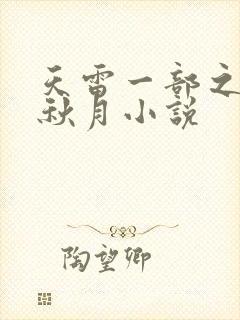 天雷一部之
秋月小説
陶望卿